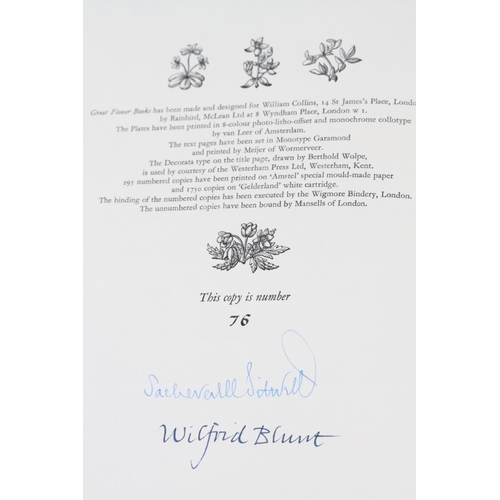 Great Flower Books has been made and designed for William Collins, 14 St James's Place, Londo
by Rainbird, McLean Ltd at 8 Wyndham Place, London W 1.
The Plates have been printed in 8-colour photo-litho-offset and monochrome collotype
by van Leer of Amsterdam.
The text pages have been set in Monotype Garamond
and printed by Meijer of Wormerveer.
The Decorata type on the title page, drawn by Berthold Wolpe,
is used by courtesy of the Westerham Press Ltd, Westerham, Kent.
295 numbered copies have been printed on 'Amstel' special mould-made paper
and 1750 copies on 'Gelderland' white cartridge.
The binding of the numbered copies has been executed by the Wigmore Bindery, London.
The unnumbered copies have been bound by Mansells of London.
This copy is number
76
Sacheverell Sitwell
Wilfrid Blunt